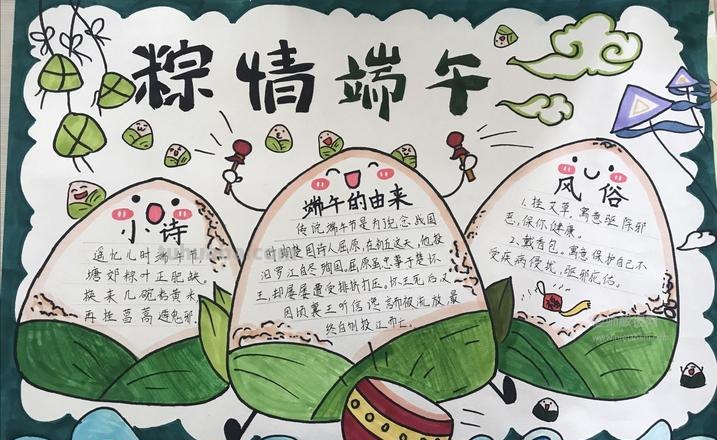 粽情端午
小诗
遥忆儿时端午节
塘郊粽叶正肥缺
换来几碗黄米
再挂菖蒿避鬼邪
端午的由来
传说端午节是为纪念战国
时期楚国诗人屈原,在初五这天,他投
汨罗江自尽殉国。屈原虽忠事于楚怀
王,却屡屡遭受排挤打压。怀王死后又
因顷襄王听信谗言而被流放,最
终自刎投江而亡。
风俗
1.挂艾草,寓意驱除邪
恶,保你健康。
2.戴香包,寓意保护自己不
受疾病侵扰,驱邪庇佑。